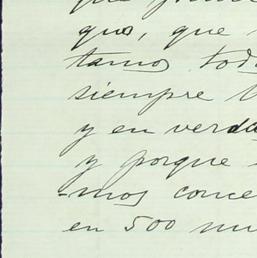 que
quo, que
tamos tod
siempre
y en verda
y porque
-mos conce
en 500 mi